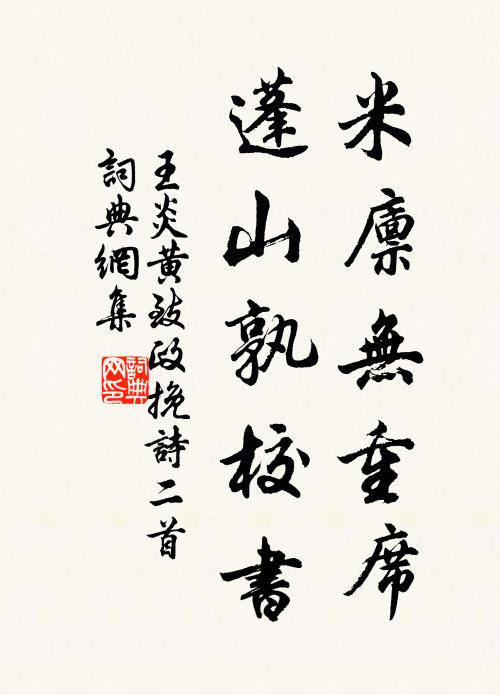 米廩無重席
蓬山孰校書
王炎黄致政挽詩二首
詞典網集
詞典網印